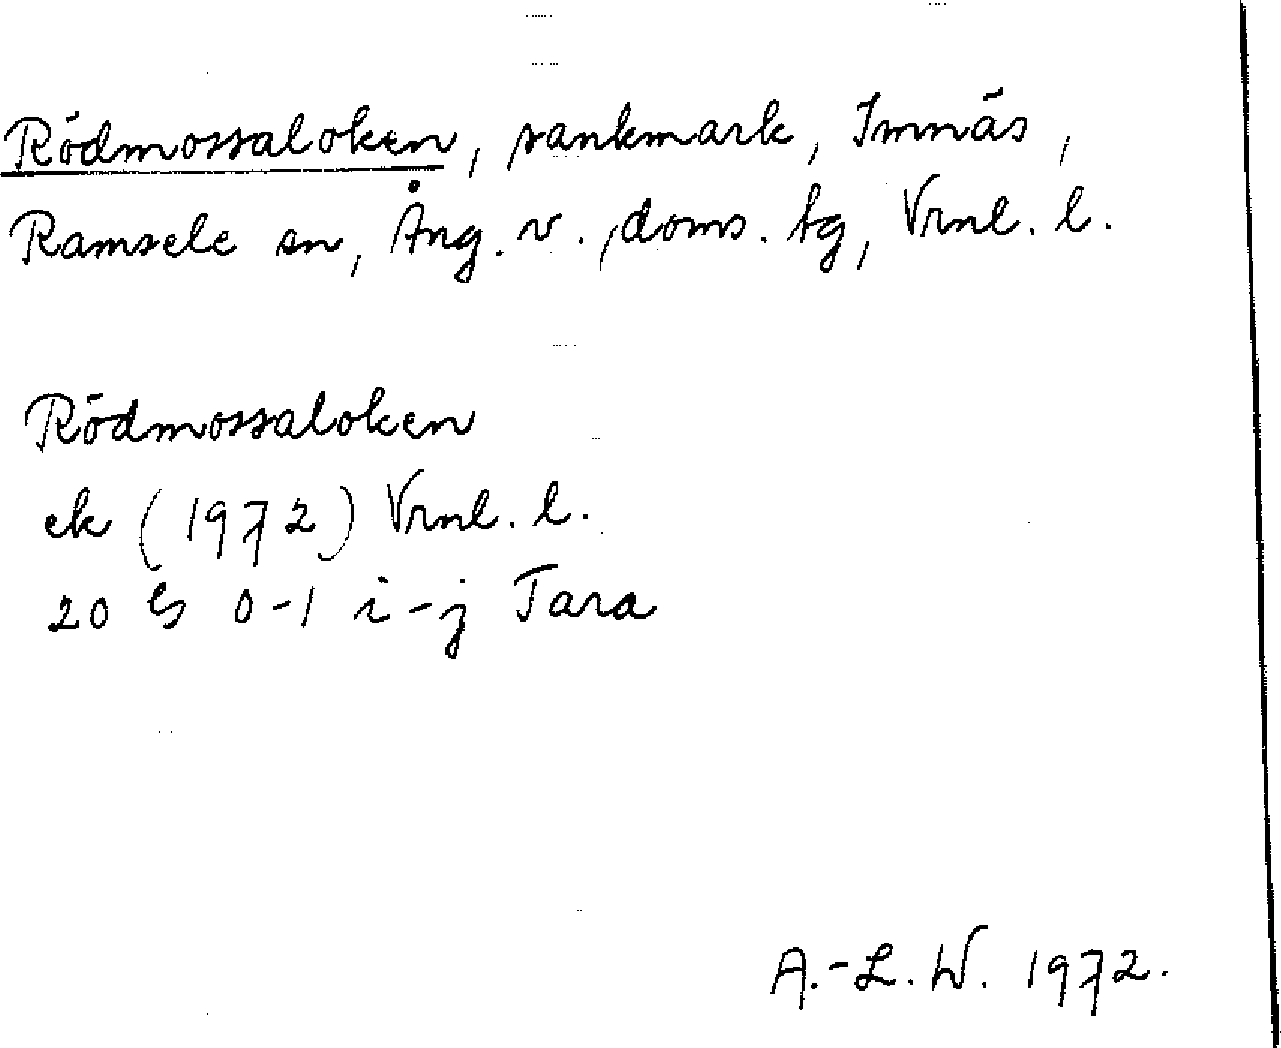 Rödmossaloken, sankmark, Imnäs,
Ramsele sn, Ång. v., doms. tg, Vrnl. l.
Rödmossaloken
ek (1972) Vrnl. l.
20 G 0-1 i-j Tara
A.-L. W. 1972.